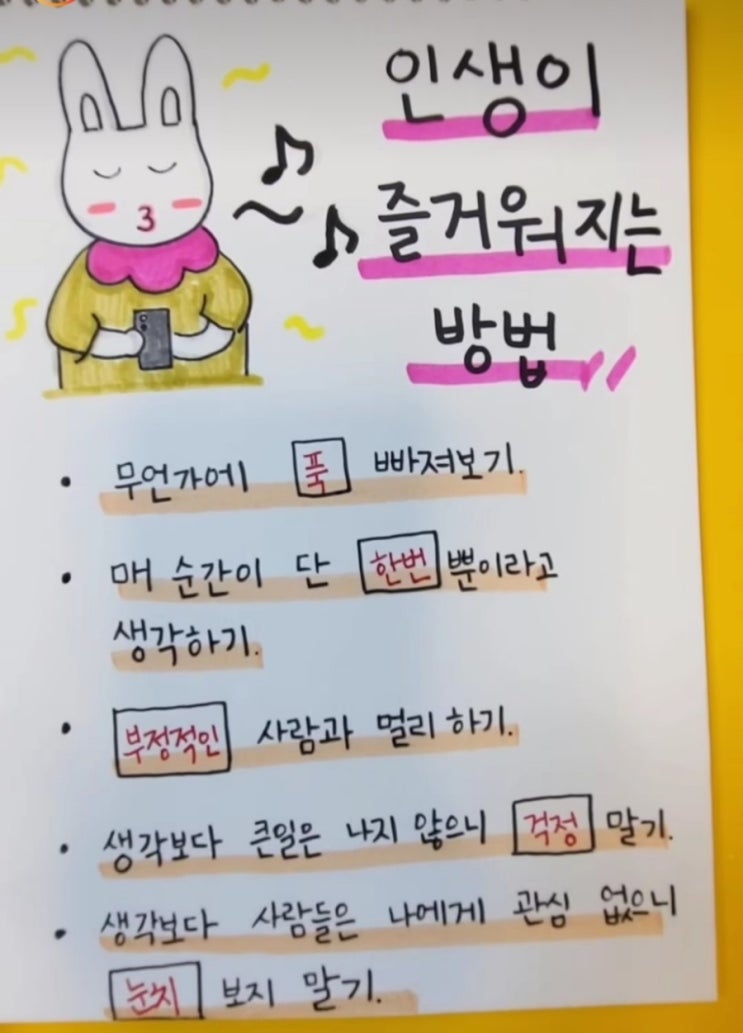 인생이
즐거워지는
방법
3
• 무언가에 푹 빠져보기.
• 매 순간이 단 한번 뿐이라고
생각하기.
• 부정적인 사람과 멀리 하기.
• 생각보다 큰일은 나지 않으니 걱정 말기.
• 생각보다 사람들은 나에게 관심 없으니
눈치 보지 말기.